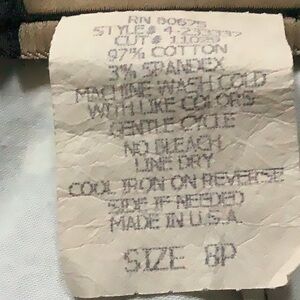 RN 80675
STYLE# 4-233337
CUT# 11039
97% COTTON
3% SPANDEX
MACHINE WASH COLD
WITH LIKE COLORS
GENTLE CYCLE
NO BLEACH
LINE DRY
COOL IRON ON REVERSE
SIDE IF NEEDED
MADE IN U.S.A.
SIZE 8P